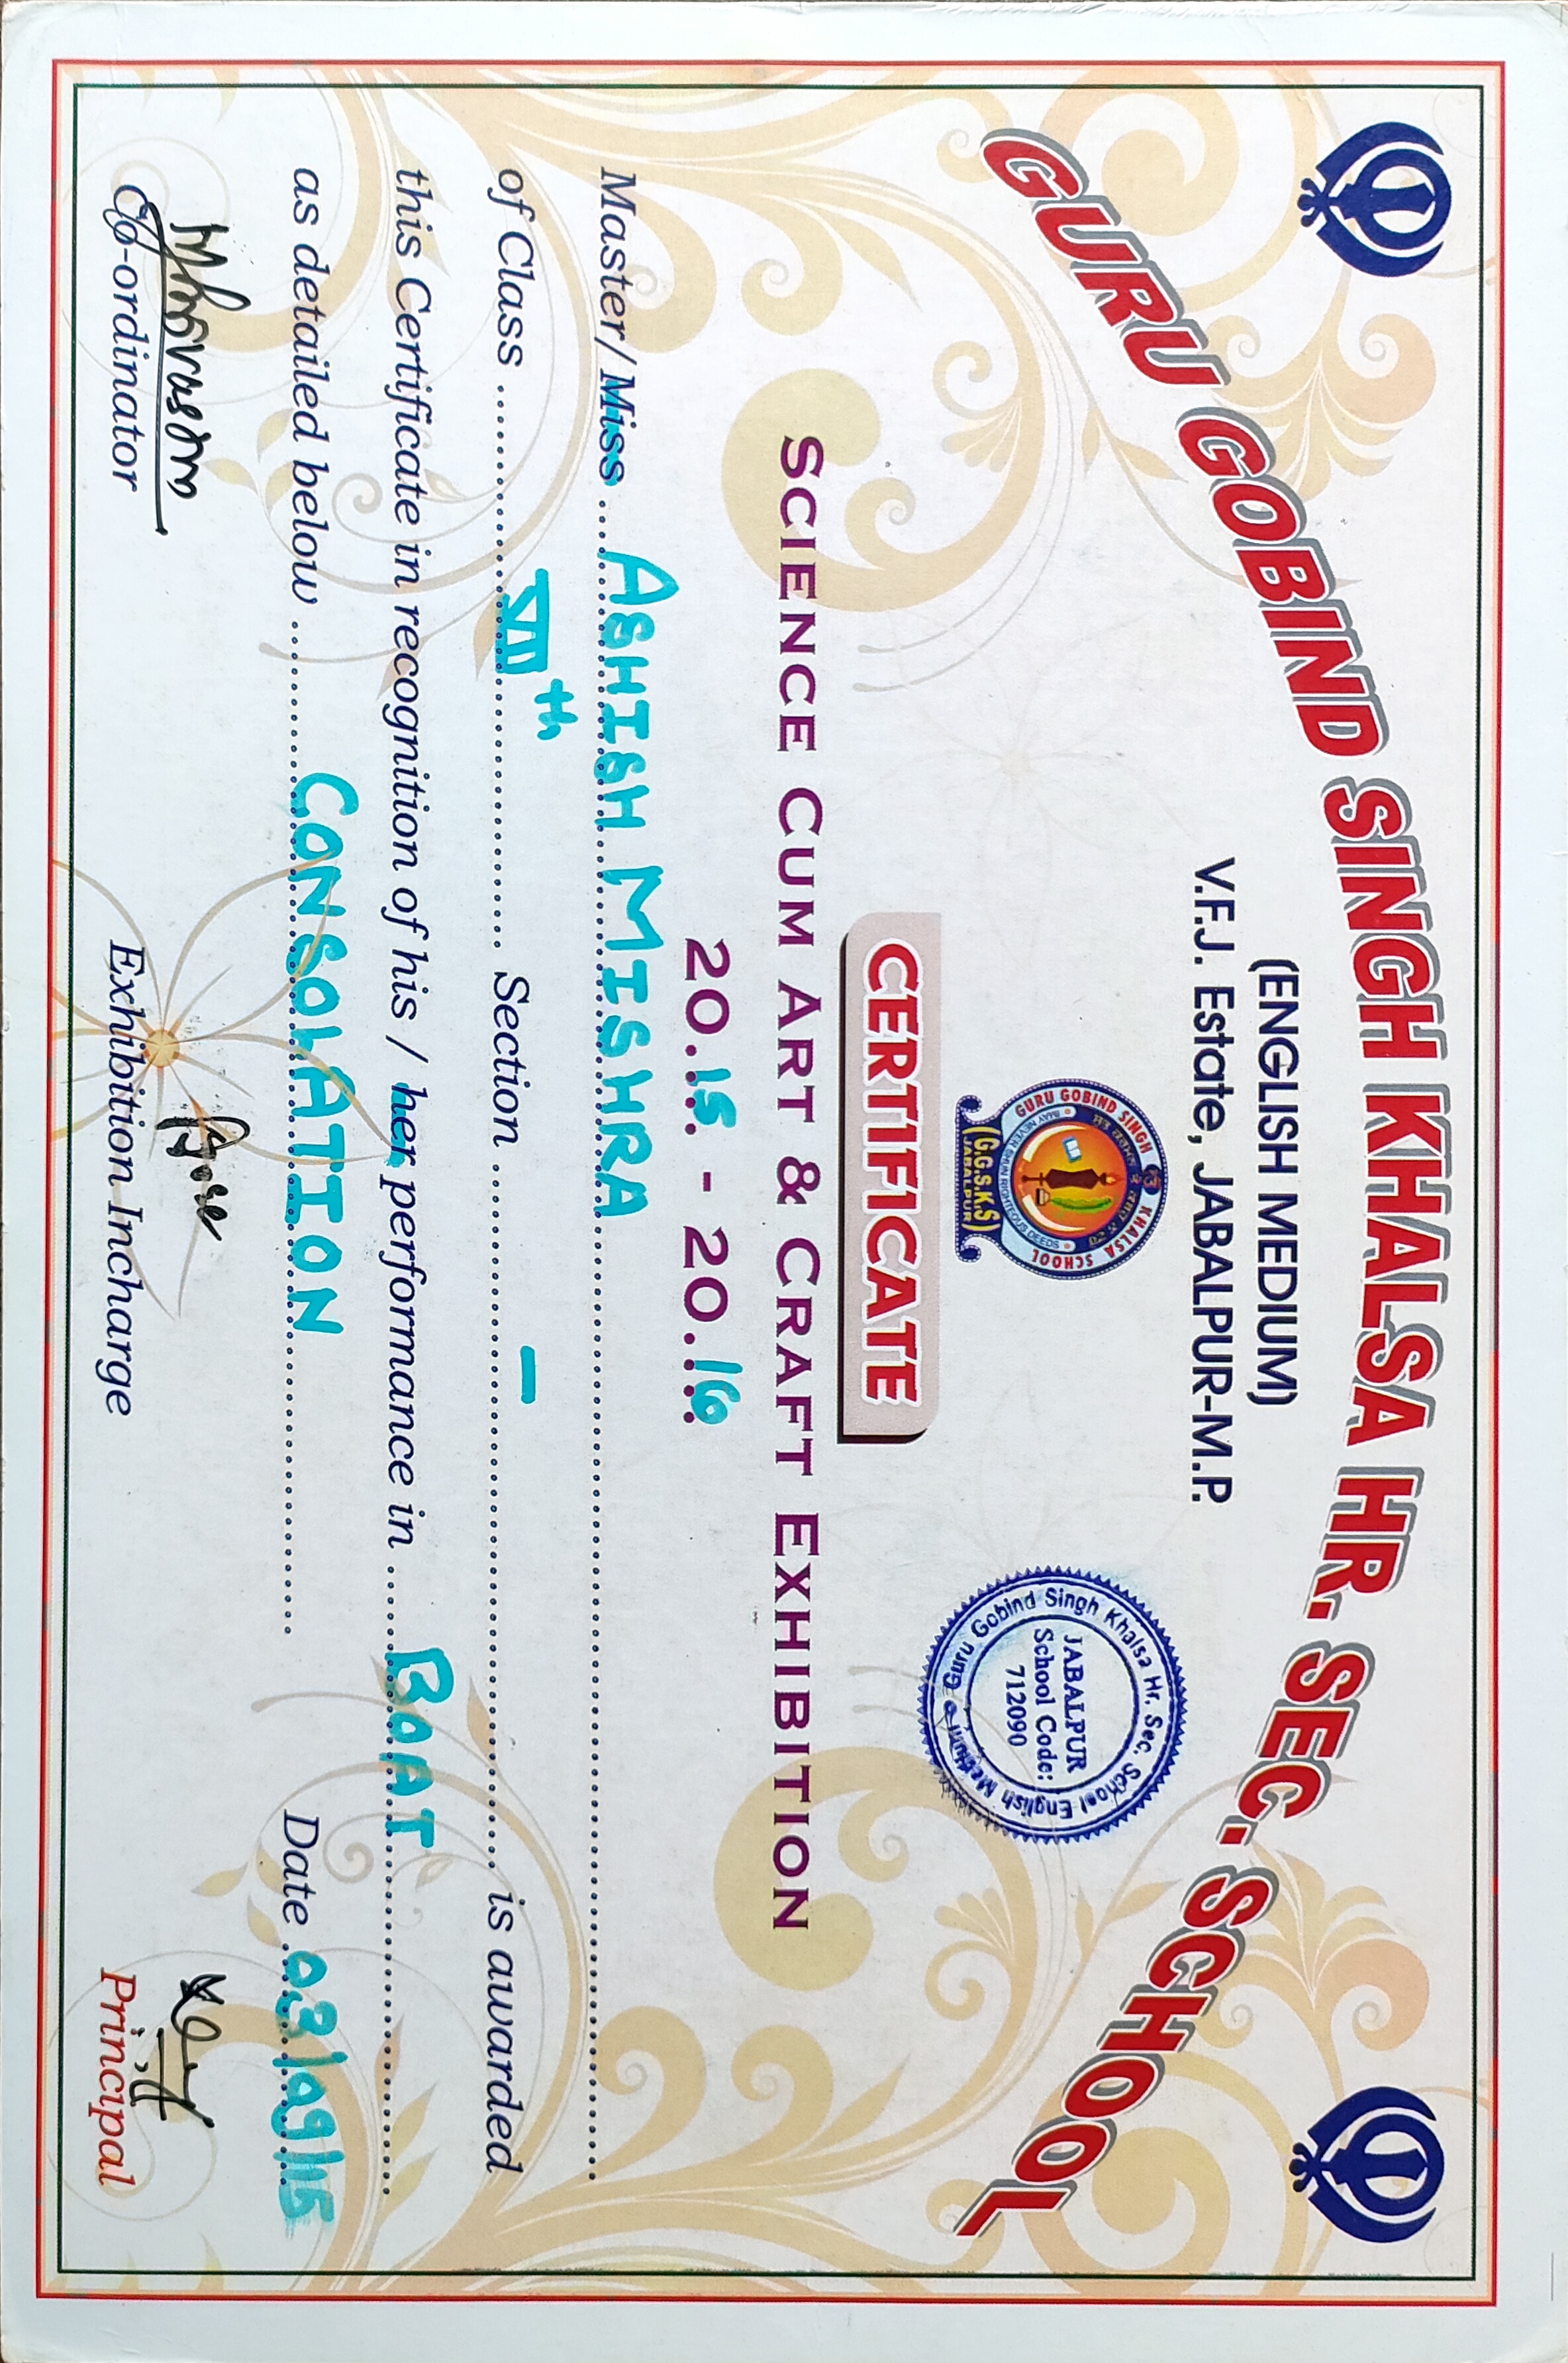 GURU GOBIND SINGH KHALSA HR. SEC. SCHOOL
(ENGLISH MEDIUM)
V.F.J. Estate, JABALPUR-M.P.
GURU GOBIND SINGH KHALSA SCHOOL
I MAY NEVER SHUN RIGHTEOUS DEEDS
(G.G.S.K.S)
JABALPUR
Guru Gobind Singh Khalsa Hr. Sec. School English Medium
JABALPUR
School Code:
712090
CERTIFICATE
SCIENCE CUM ART & CRAFT EXHIBITION
20.15. - 20.16
Master/Miss ... ASHISH MISHRA
of Class ... VIIth ... Section ... – ... is awarded
this Certificate in recognition of his / her performance in ... BOAT
as detailed below ... CONSOLATION ... Date 03/09/15
Co-ordinator Exhibition Incharge Principal